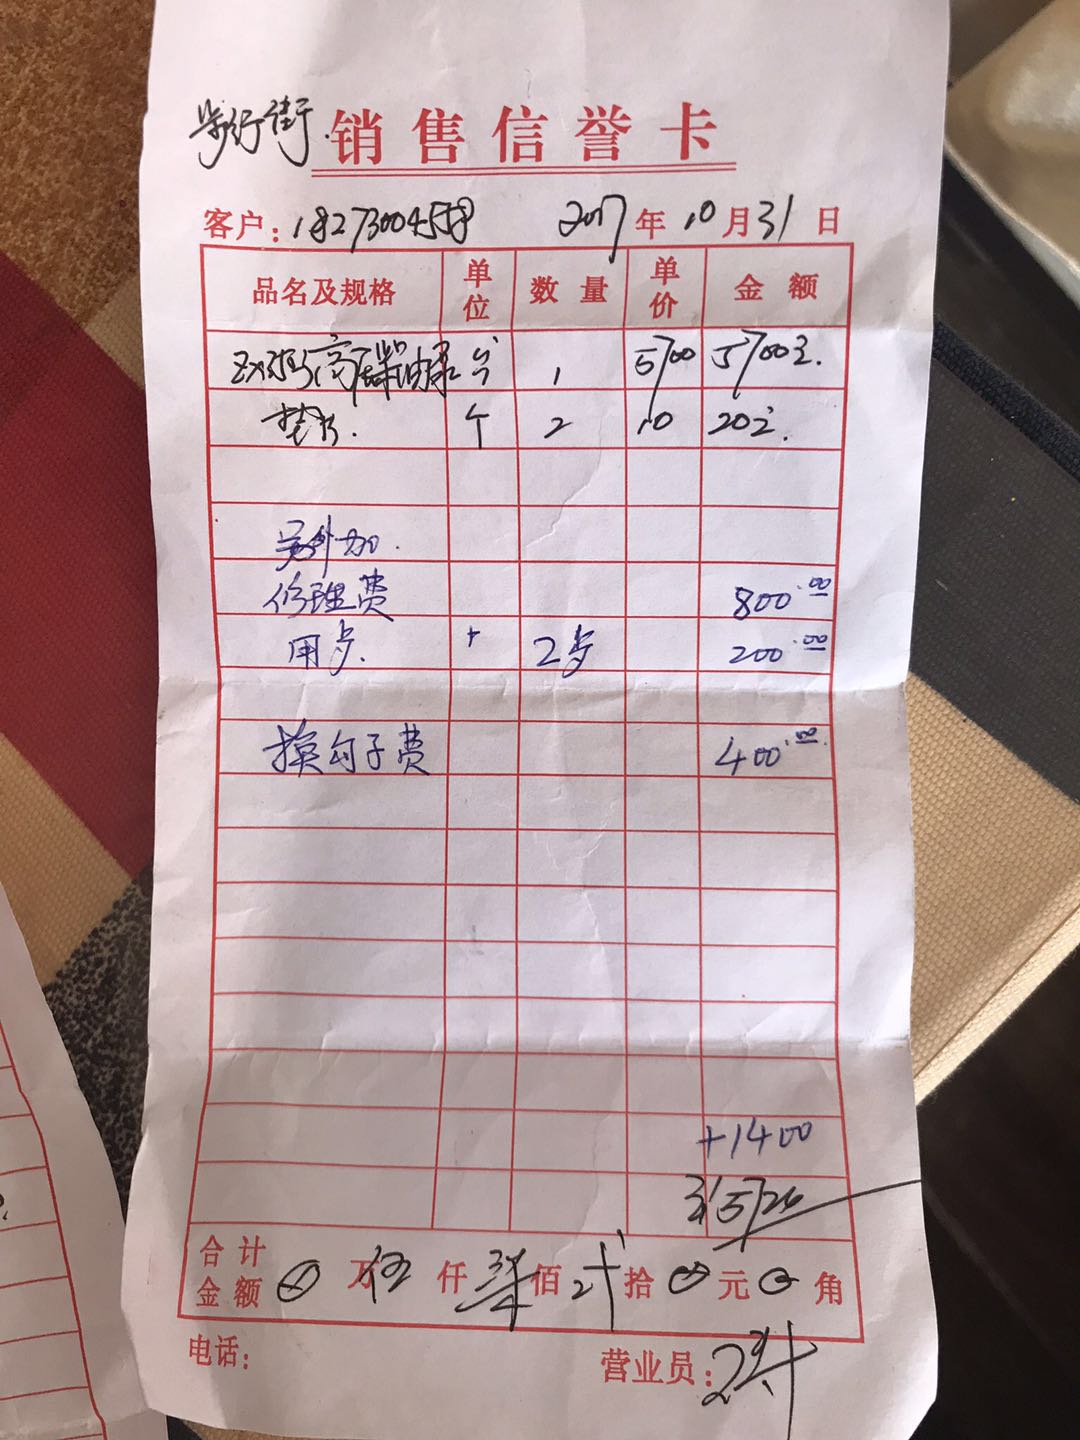 步行街 销售信誉卡
客户: 18273004558 2017年10月31日
品名及规格 单位 数量 单价 金额
高压柴油泵 台 1 5700 5700元.
垫片. 个 2 10 20元.
另外加.
修理费 800.00
用步. 2步 200.00
换勾子费 400.00
+1400
5720
合计金额 万伍仟柒佰 拾 元 角
电话: 营业员: